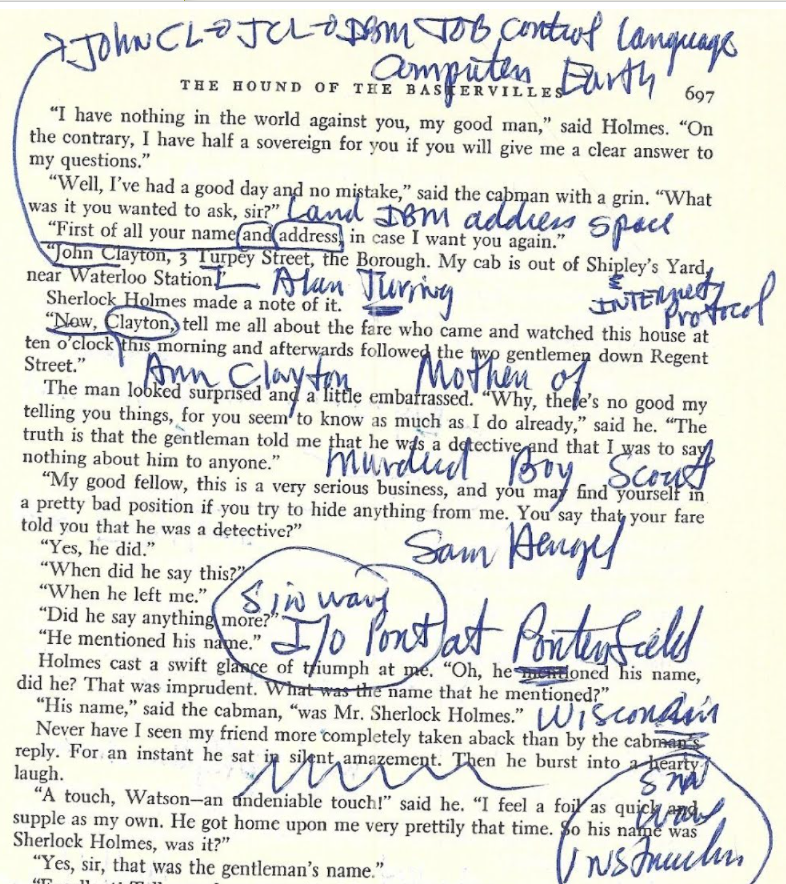 JohnCL→JCL→IBM JOB Control Language
Computer Earth
THE HOUND OF THE BASKERVILLES 697
“I have nothing in the world against you, my good man,” said Holmes. “On
the contrary, I have half a sovereign for you if you will give me a clear answer to
my questions.”
“Well, I’ve had a good day and no mistake,” said the cabman with a grin. “What
was it you wanted to ask, sir?”
Land IBM address space
“First of all your name and address, in case I want you again.”
“John Clayton, 3 Turpey Street, the Borough. My cab is out of Shipley’s Yard,
near Waterloo Station.”
Alan Turing
& INTERNET
Protocol
Sherlock Holmes made a note of it.
“Now, Clayton, tell me all about the fare who came and watched this house at
ten o’clock this morning and afterwards followed the two gentlemen down Regent
Street.”
Ann Clayton Mother of
The man looked surprised and a little embarrassed. “Why, there’s no good my
telling you things, for you seem to know as much as I do already,” said he. “The
truth is that the gentleman told me that he was a detective and that I was to say
nothing about him to anyone.”
Murdered Boy Scout
“My good fellow, this is a very serious business, and you may find yourself in
a pretty bad position if you try to hide anything from me. You say that your fare
told you that he was a detective?”
Sam
“Yes, he did.”
“When did he say this?”
“When he left me.”
Sin wave
“Did he say anything more?”
“He mentioned his name.”
I/O Port at Porterfield
Holmes cast a swift glance of triumph at me. “Oh, he mentioned his name,
did he? That was imprudent. What was the name that he mentioned?”
“His name,” said the cabman, “was Mr. Sherlock Holmes.”
Wisconsin
Never have I seen my friend more completely taken aback than by the cabman’s
reply. For an instant he sat in silent amazement. Then he burst into a hearty
laugh.
“A touch, Watson—an undeniable touch!” said he. “I feel a foil as quick and
supple as my own. He got home upon me very prettily that time. So his name was
Sherlock Holmes, was it?”
wave
“Yes, sir, that was the gentleman’s name.”